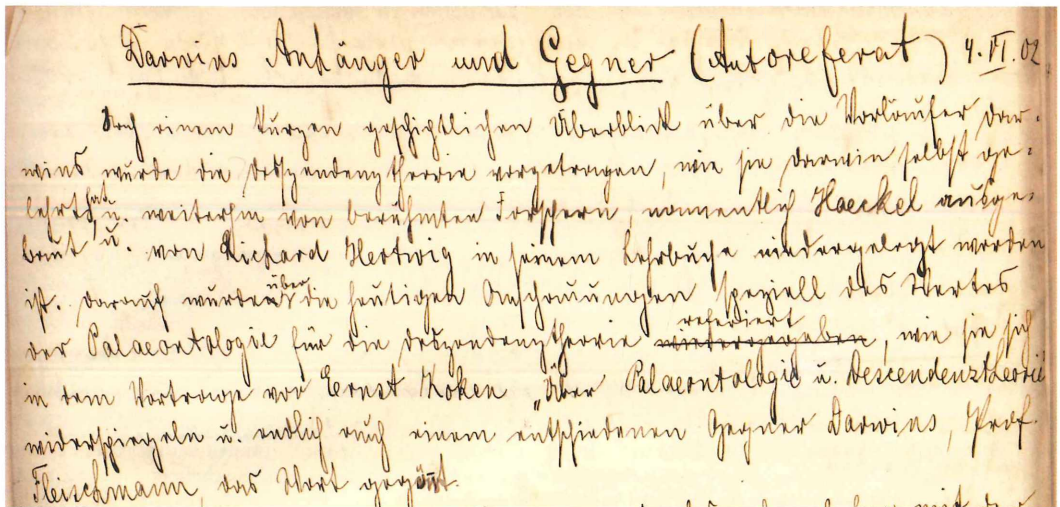 Darwins Anhänger und Gegner (Autoreferat) 4. VI. 02
Nach einem kurzen geschichtlichen Überblick über die Vorläufer Dar-
wins wurde die Deszendenztheorie vorgetragen, wie sie Darwin selbst ge-
lehrt hat u. weiterhin von berühmten Forschern, namentlich Haeckel ausge-
baut u. von Richard Hertwig in seinem Lehrbuche niedergelegt worden
ist. Darauf wurde über die heutigen Anschauungen speziell des Wertes
der Palaeontologie für die Deszendenztheorie wiedergegeben referiert, wie sie sich
in dem Vortrage von Ernst Koken „Über Palaeontologie u. Descendenztheorie
widerspiegeln u. endlich auch einem entschiedenen Gegner Darwins, Prof.
Fleischmann, das Wort gegönnt.